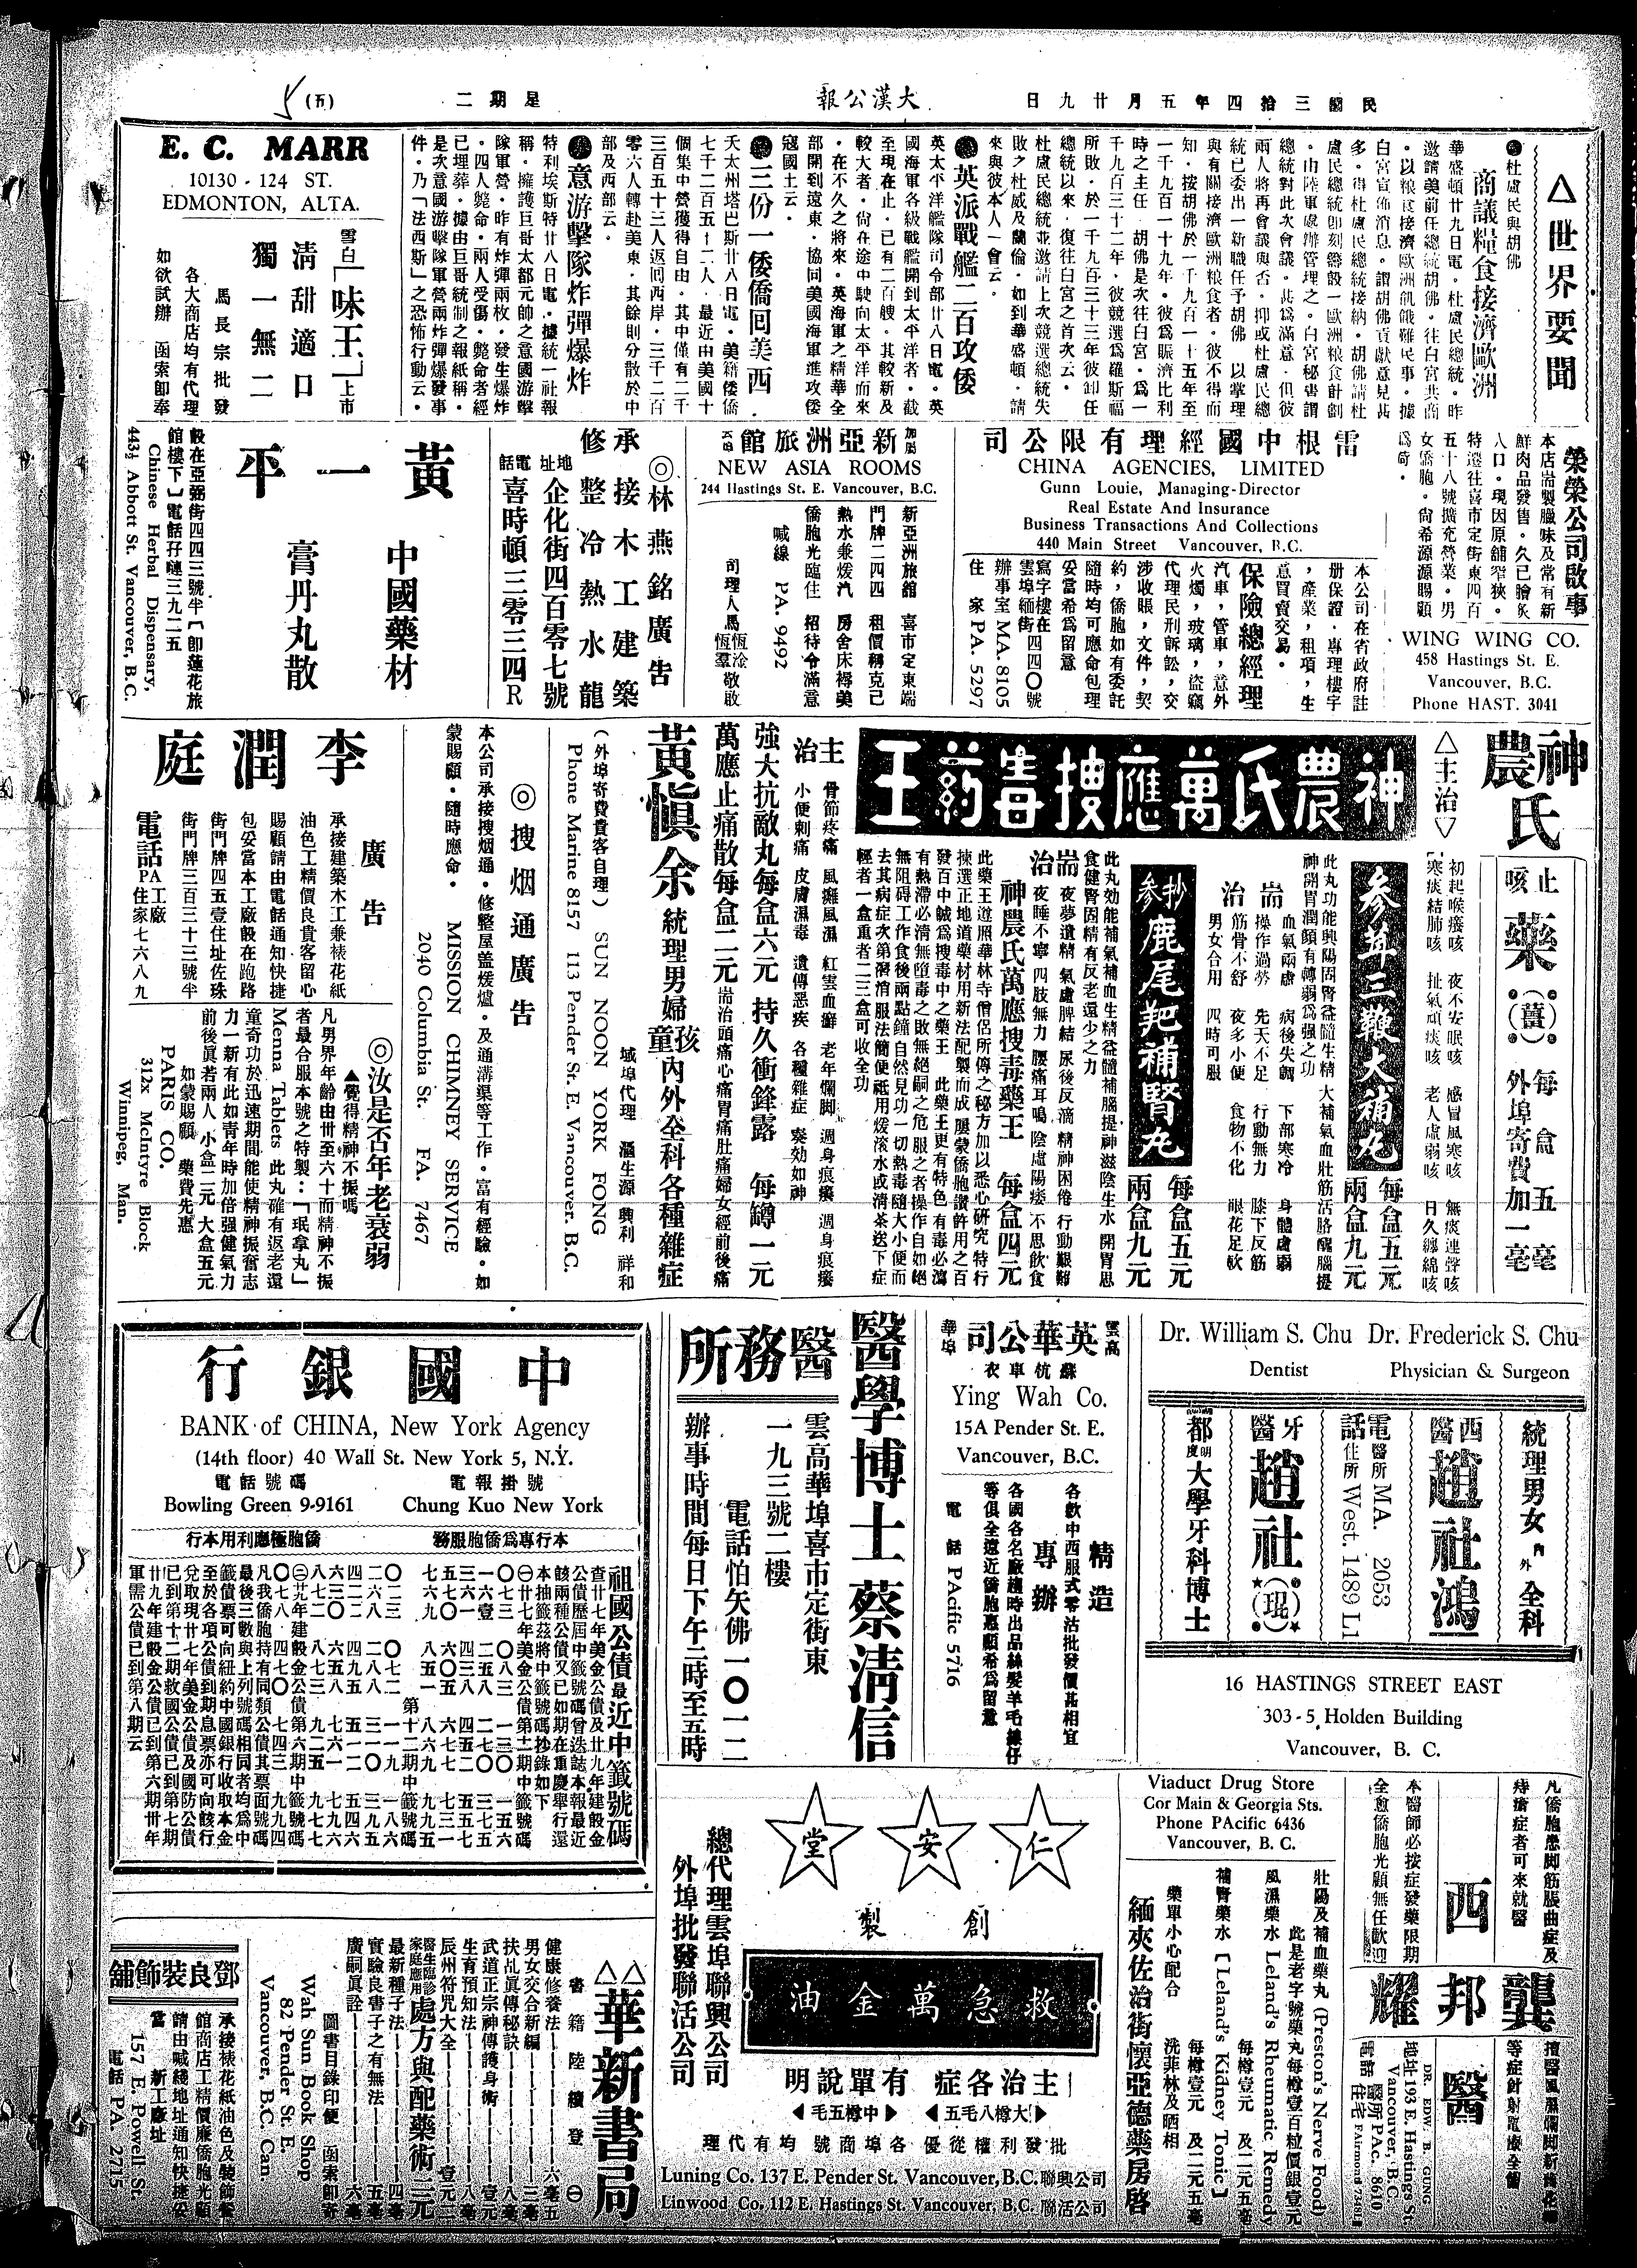 民國三拾四年五月廿九日
大漢公報
星期二
(五)
△世界要聞
●杜盧民與胡佛
商議糧食接濟歐洲
華盛頓廿九日電・杜盧民總統・昨
邀請美前任總統胡佛・往白宮共商
・以粮食接濟歐洲飢餓難民事・據
白宮宣佈消息・謂胡佛貢獻意見甚
多・得杜盧民總統接納・胡佛請杜
盧民總統卽刻籌設一歐洲粮食計劃
・由陸軍處辦管理之・白宮秘書謂
總統對此次會議・甚爲滿意・但彼
兩人將再會議與否・抑或杜盧民總
統已委出一新職任予胡佛 以掌理
與有關接濟歐洲粮食者・彼不得而
知・按胡佛於一千九百一十五年至
一千九百一十九年・彼爲賑濟比利
時之主任 胡佛是次往白宮・爲一
千九百三十二年・彼競選爲羅斯福
所敗・於一千九百三十三年彼卸任
總統以來・復往白宮之首次云・
杜盧民總統並邀請上次競選總統失
敗之杜威及蘭倫・如到華盛頓・請
來與彼本人一會云・
●英派戰艦二百攻倭
英太平洋艦隊司令部廿八日電・英
國海軍各級戰艦開到太平洋者・截
至現在止・已有二百艘・其較新及
較大者・尙在途中駛向太平洋而來
・在不久之將來・英海軍之精華全
部開到遠東・協同美國海軍進攻倭
寇國土云・
●三份一倭僑回美西
天太州塔巴斯廿八日電・美籍倭僑
七千二百五十二人・最近由美國十
個集中營獲得自由・其中僅有二千
三百五十三人返回西岸・三千二百
零六人轉赴美東・其餘則分散於中
部及西部云・
●意游擊隊炸彈爆炸
特利埃斯特廿八日電・據統一社報
稱・擁護巨哥太都元帥之意國游擊
隊軍營・昨有炸彈兩枚・發生爆炸
・四人斃命・兩人受傷・斃命者經
已埋葬・據由巨哥統制之報紙稱・
是次意國游擊隊軍營兩炸彈爆發事
件・乃「法西斯」之恐怖行動云・
E. C. MARR
10130 - 124 ST.
EDMONTON, ALTA.
雪白「味王」上市
淸甜適口
獨一無二
馬長宗批發
各大商店均有代理
如欲試辦 函索卽奉
榮榮公司啟事
本店耑製臘味及常有新
鮮肉品發售・久已膾炙
人口・現因原舖窄狹・
特遷往喜市定街東四百
五十八號擴充營業・男
女僑胞・尙希源源賜顧
爲荷・
WING WING CO.
458 Hastings St. E.
Vancouver, B.C.
Phone HAST. 3041
雷根中國經理有限公司
CHINA AGENCIES, LIMITED
Gunn Louie, Managing-Director
Real Estate And Insurance
Business Transactions And Collections
440 Main Street Vancouver, B.C.
本公司在省政府註
册保證・專理樓宇
，產業，租項，生
意買賣交易・
保險總經理
汽車，管車，意外
火燭，玻璃，盜竊
代理民刑訴訟，交
涉收賬，文件，契
約，僑胞如有委託
隨時均可應命包理
妥當希爲留意
寫字樓在
雲埠緬街四四〇號
辦事室 MA. 8105
住 家 PA. 5297
新亞洲旅館
NEW ASIA ROOMS
244 Hastings St. E. Vancouver, B.C.
新亞洲旅舘 喜市定東端
門牌二四四 租價稱克己
熱水兼煖汽 房舍床褥美
僑胞光臨住 招待令滿意
喊線 PA. 9492
司理人馬恆淦 恆羣敬啟
◎林燕銘廣告
承接木工建築
修整冷熱水龍
地址 企化街四百零七號
電話 喜時頓三零三四R
黃一平
中國藥材
膏丹丸散
設在亞弼街四四三號半〔卽蓮花旅
館樓下〕電話孖噠三九二五
Chinese Herbal Dispensary,
443½ Abbott St. Vancouver, B.C.
神農氏
止咳藥(薑)每盒五毫
外埠寄費加一毫
△主治▽
初起喉癢咳 夜不安眠咳 感冒風寒咳 無痰連聲咳
寒痰結肺咳 扯氣頑痰咳 老人虛弱咳 日久纏綿咳
神農氏萬應搜毒葯王
參茸三鞭大補丸
每盒五元
兩盒九元
此丸功能興陽固腎益髓生精 大補氣血壯筋活胳醒腦提
神開胃潤顏有轉弱爲强之功
耑治
血氣兩虛 病後失調 下部寒冷 身體虛弱
操作過勞 先天不足 行動無力 膝下反筋
筋骨不舒 夜多小便 食物不化 眼花足軟
男女合用 四時可服
抄參鹿尾把補腎丸
每盒五元
兩盒九元
此丸効能補氣補血生精益髓補腦提神滋陰生水 開胃思
食健腎固精有反老還少之力
耑治
夜夢遺精 氣虛脾結 尿後反滴 精神困倦 行動艱難
夜睡不寧 四肢無力 腰痛耳鳴 陰虛陽痿 不思飲食
神農氏萬應搜毒藥王 每盒四元
此藥王遵照華林寺僧侶所傳之秘方加以悉心硏究特行
揀選正地道藥材用新法配製而成 屢蒙僑胞讚許用之百
發百中誠爲搜毒中之藥王 此藥王更有特色 有毒必瀉
有熱滯必淸無墮毒之敗無絕嗣之危服之者操作自如絕
無阻碍工作食後兩點鐘自然見功一切熱毒隨大小便而
去其病症次第潛消服法簡便祗用煖滾水或淸茶送下症
輕者一盒重者二三盒可收全功
主治
骨節疼痛 風攤風濕 紅雲血癬 老年爛脚 週身痕癢
小便刺痛 皮膚濕毒 遺傳惡疾 各種雜症 奏効如神
強大抗敵丸每盒六元 持久衝鋒露 每罇一元
萬應止痛散每盒二元 耑治頭痛心痛胃痛肚痛婦女經前後痛
黃愼余 統理男婦孩童內外全科各種雜症
域埠代理 滙生源 興利 祥和
(外埠寄費貴客自理) SUN NOON YORK FONG
Phone Marine 8157 113 Pender St. E. Vancouver. B.C.
◎搜烟通廣告
本公司承接搜烟通・修整屋盖煖爐・及通溝渠等工作・富有經驗・如
蒙賜顧・隨時應命・
MISSION CHIMNEY SERVICE
2040 Columbia St. FA. 7467
李潤庭
廣告
承接建築木工兼裱花紙
油色工精價良貴客留心
賜顧請由電話通知快捷
包妥當本工廠設在跑路
街門牌四五壹住址佐珠
街門牌三百三十三號半
電話PA 工廠 住家七六八九
◎汝是否年老衰弱
▲覺得精神不振嗎
凡男界年齡由卅至六十而精神不振
者最合服本號之特製：「珉拿丸」
Menna Tablets 此丸確有返老還
童奇功於迅速期間能使精神振奮志
力一新有此如青年時加倍强健氣力
前後眞若兩人 小盒二元 大盒五元
如蒙賜顧 藥費先惠
PARIS CO.
312x McIntyre Block
Winnipeg, Man.
Dr. William S. Chu Dr. Frederick S. Chu
Dentist Physician & Surgeon
統理男女內外全科
西醫 趙社鴻
電話 醫所 MA. 2053
住所 West. 1489 L1
牙醫 趙社(琨)
都大學牙科博士
16 HASTINGS STREET EAST
303-5, Holden Building
Vancouver, B. C.
雲高華埠
英華公司
蘇杭車衣
Ying Wah Co.
15A Pender St. E.
Vancouver, B.C.
精造
專辦
各欵中西服式零沽批發價甚相宜
各國各名廠趨時出品絲髮羊毛線仔
等俱全遠近僑胞惠顧希爲留意
電話 PAcific 5716
醫學博士蔡淸信
醫務所
雲高華埠喜市定街東
一九三號二樓
電話怕矢佛一〇一二
辦事時間每日下午二時至五時
中國銀行
BANK of CHINA, New York Agency
(14th floor) 40 Wall St. New York 5, N.Y.
電報掛號 電話號碼
Chung Kuo New York Bowling Green 9-9161
本行專爲僑胞服務 僑胞極應利用本行
祖國公債最近中籤號碼
查廿七年美金公債及廿九年建設金
公債歷屆中籤號碼曾迭誌本報最近
該兩種公債又已如期在重慶舉行還
本抽籤茲將中籤號碼抄錄如下
㊀廿七年美金公債第十二期中籤號碼
㊁廿九年建設金公債第六期中籤號碼
凡我僑胞持有同類公債其票面號碼
最後三數與上列號碼相同者均爲中
籤債票可向紐約中國銀行收取本金
至於各項公債到期息票亦可向該行
兌取現廿七年美金公債及國防公債
已到第十二期救國公債已到第七期
廿九年建設金公債已到第六期卅年
軍需公債已到第八期云
凡僑胞患脚筋脹曲症及
痔瘡症者可來就醫
本醫師必按症發藥限期
全愈僑胞光顧無任歡迎
西醫
龔邦耀
DR. EDW. B. GUNG
地址 193 E. Hastings St.
Vancouver, B.C.
醫所 PAc. 8610
Viaduct Drug Store
Cor Main & Georgia Sts.
Phone PAcific 6436
Vancouver, B. C.
壯陽及補血藥丸 (Preston's Nerve Food)
此是老字號藥丸每罇壹百粒價銀壹元
風濕藥水 Leland's Rheumatic Remedy
每罇壹元 及二元五毫
補腎藥水 [Leland's Kidney Tonic]
每罇壹元 及二元五毫
藥單小心配合 洗菲林及晒相
緬夾佐治街懷亞德藥房啓
仁安堂
創製
救急萬金油
主治各症 有單說明
大罇八毛五 中罇五毛
批發利權從優 各埠商號均有代理
總代理雲埠聯興公司
外埠批發聯活公司
Luning Co. 137 E. Pender St. Vancouver, B.C. 聯興公司
Linwood Co. 112 E. Hastings St. Vancouver, B.C. 聯活公司
△△華新書局
書籍陸續登㊀
健康修養法 六毫五
男女交合新編 三毫
扶乩眞傳秘訣 八毫
武道正宗神傳護身術 壹元
生育預知法 八毫
辰州符咒大全 壹元二
醫生臨診 家庭應用 處方與配藥術 二元
最新種子法 四毫
實驗良書子之有無法 五毫
廣嗣眞詮 六毫
圖書目錄印便 函索卽寄
Wah Sun Book Shop
82 Pender St. E.
Vancouver, B.C. Can.
鄧良裝飾舖
承接裱花紙油色及裝飾餐
館商店工精價廉僑胞光顧
請由喊綫地址通知快捷妥
當 新工廠址
157 E. Powell St.
電話 PA. 2715